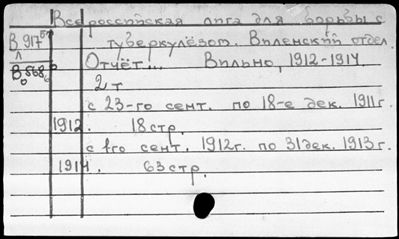 Всероссийская лига для борьбы с
туберкулёзом. Виленский отдел.
Отчёт... Вильно, 1912-1914.
2 т
с 23-го сент. по 18-е дек. 1911г.
1912. 18 стр.
с 1го сент. 1912г. по 31 дек. 1913г.
1914. 63 стр.